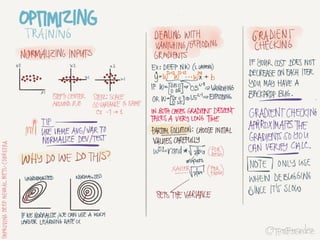 OPTIMIZING
TRAINING
NORMALIZING INPUTS
STEP1: CENTER
AROUND 0,0
STEP2: SCALE
SO VARIANCE IS SAME
-1 → 1
TIP
USE SAME AVG/VAR TO
NORMALIZE DEV/TEST
WHY DO WE DO THIS?
UNNORMALIZED
NORMALIZED
IF WE NORMALIZE, WE CAN USE A MUCH
LARGER LEARNING RATE α
DEALING WITH
VANISHING/EXPLODING
GRADIENTS
EX: DEEP NW (L LAYERS)
VANISHING
EXPLODING
IN BOTH CASES GRADIENT DESCENT
TAKES A VERY LONG TIME
PARTIAL SOLUTION: CHOOSE INITIAL
VALUES CAREFULLY
rand
XAVIER
SETS THE VARIANCE
GRADIENT
CHECKING
IF YOUR COST DOES NOT
DECREASE ON EACH ITER
YOU MAY HAVE A
BACKPROP BUG.
GRADIENT CHECKING
APPROXIMATES THE
GRADIENTS SO YOU
CAN VERIFY CALC.
NOTE ONLY USE
WHEN DEBUGGING
SINCE IT'S SLOW
IMPROVING DEEP NEURAL NETS - COURSERA
@TessFerrandez